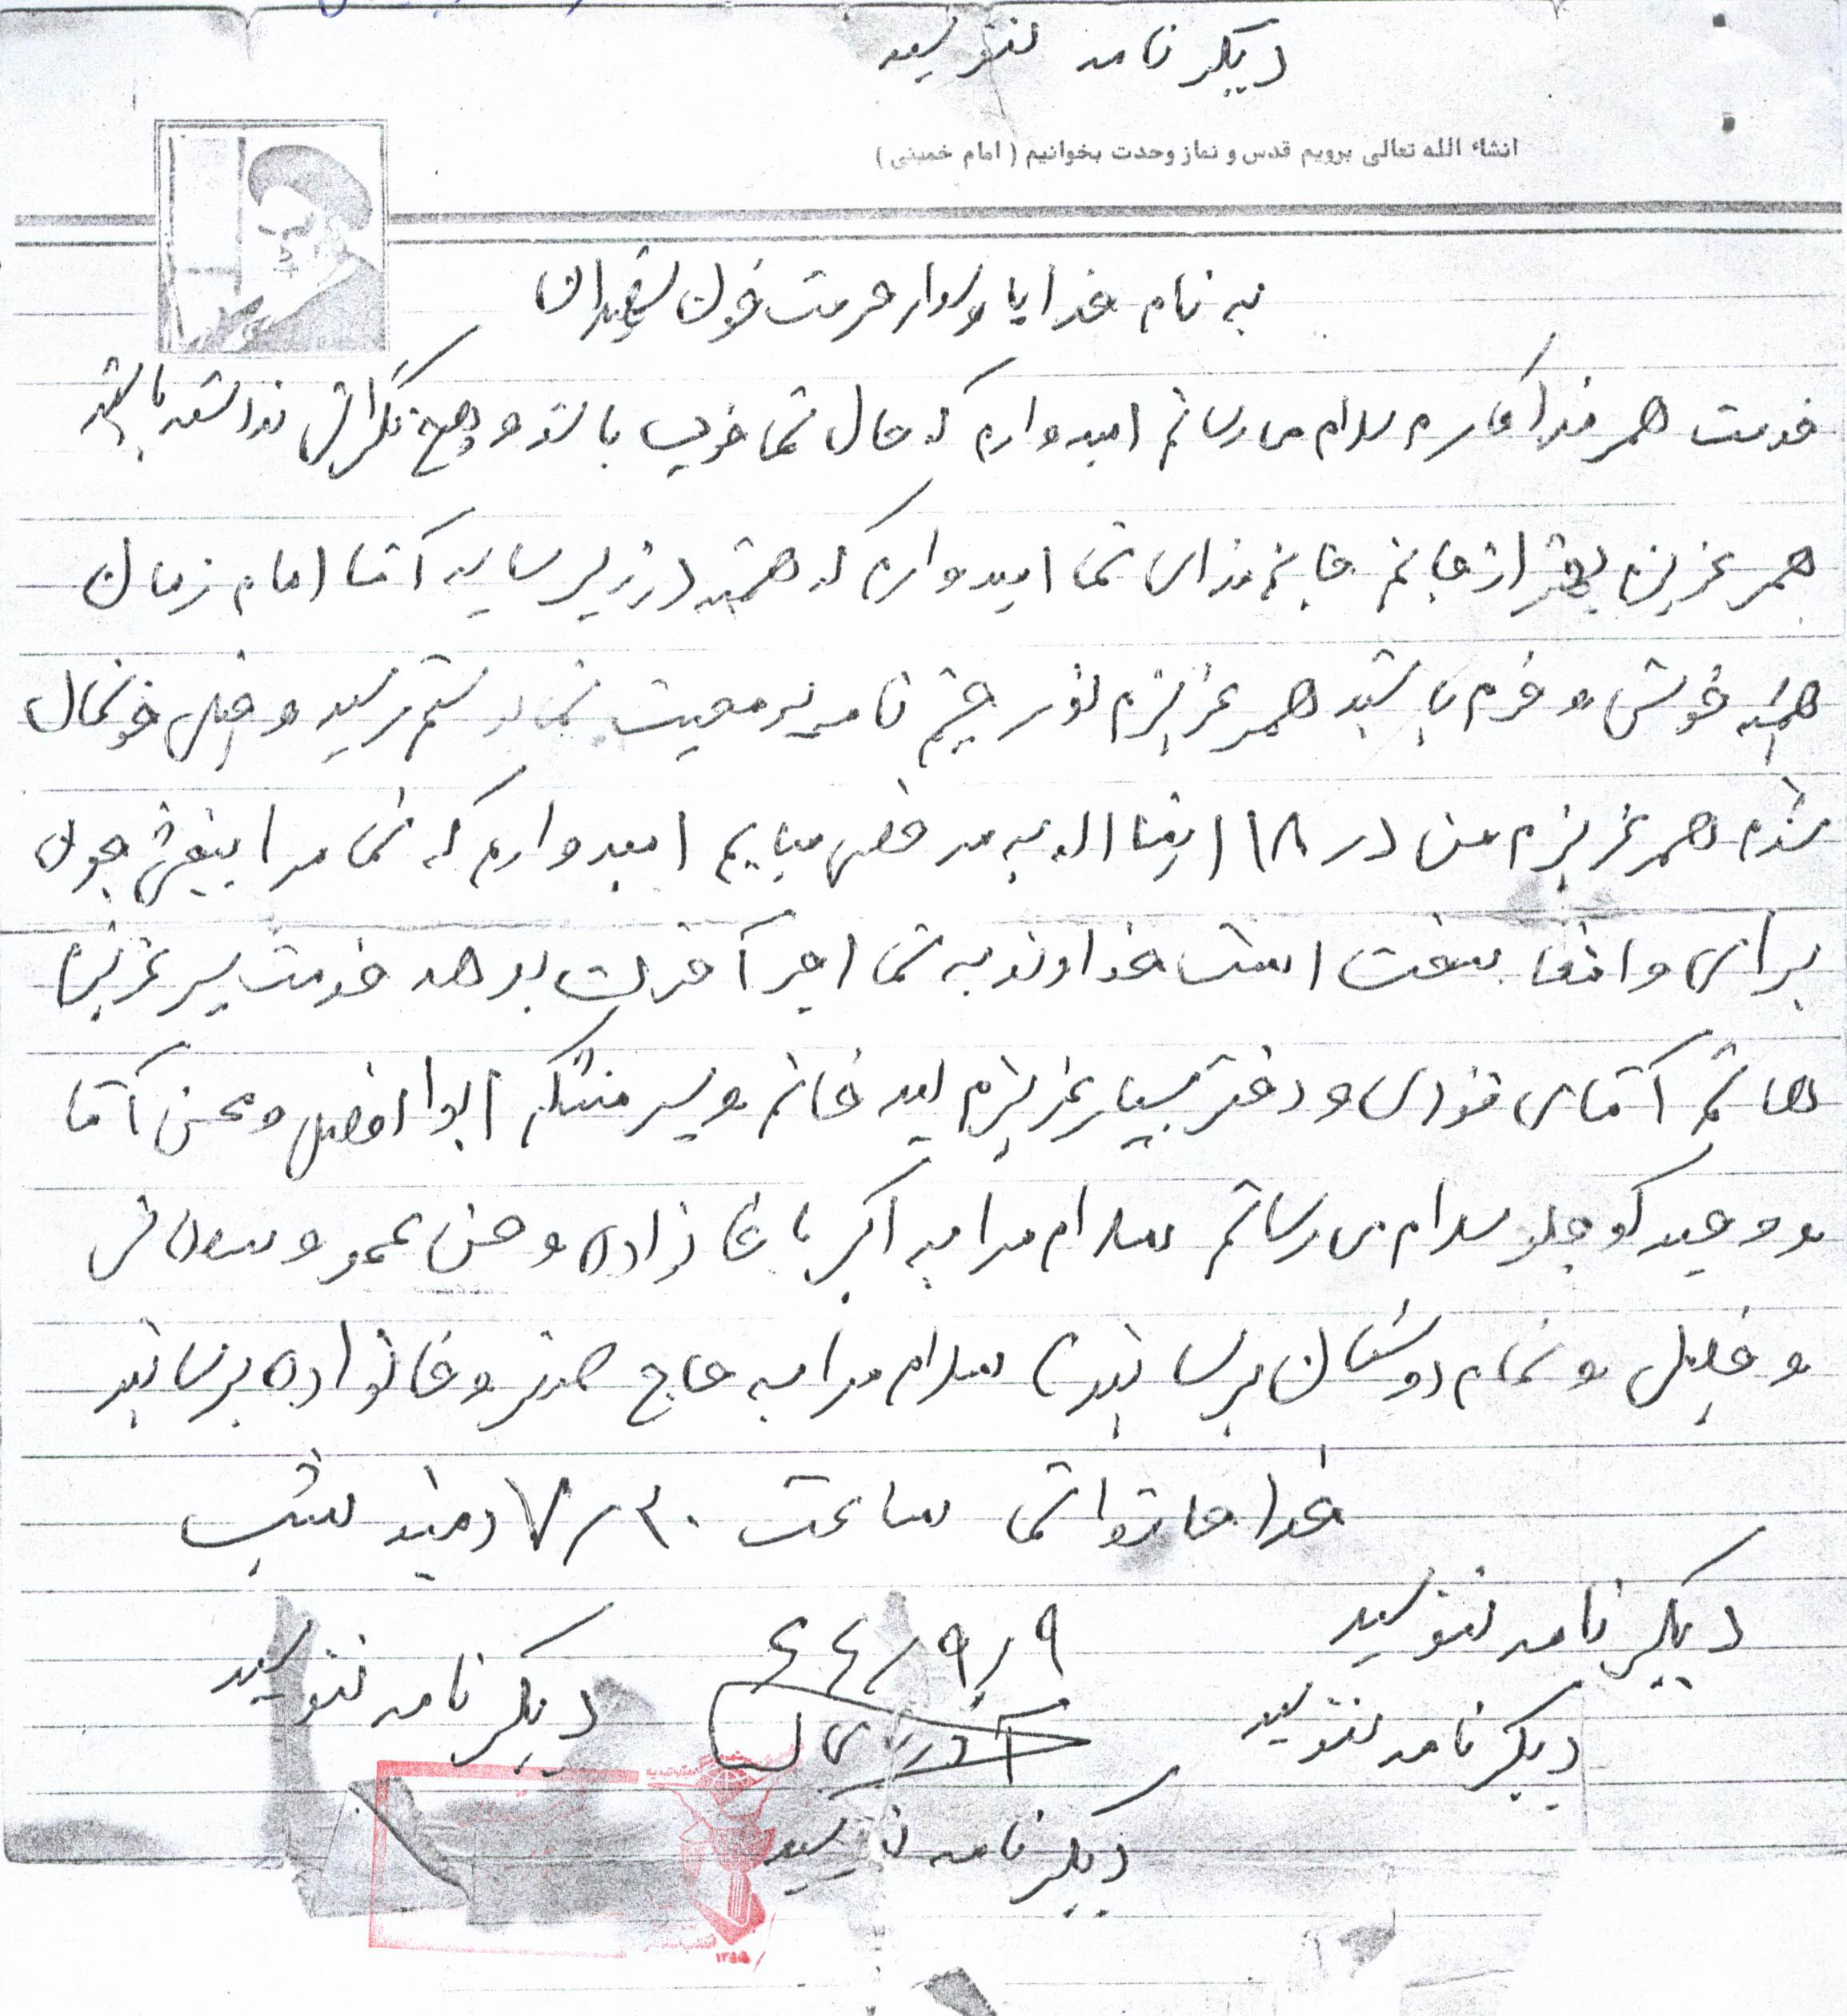 دیگر نامه ننویسید
انشاء الله تعالی برویم قدس و نماز وحدت بخوانیم ( امام خمینی )
به نام خدایا پاسدار حرمت خون شهیدان
خدمت همسر فداکارم سلام می رسانم امیدوارم که حال شما خوب باشد و هیچ نگرانی نداشته باشید
همسر عزیزم بهتر از جانم جانم فدای شما امیدوارم که همیشه در زیر سایه آقا امام زمان
همیشه خوش و خرم باشید همسر عزیزم نور چشم نامه پر محبت شما بدستم رسید و خیلی خوشحال
شدم همسر عزیزم من در ۱۸ انشاالله به مرخصی میایم امیدوارم که شما مرا ببخشی چون
برای واقعا سخت است خداوند به شما اجر آخرت بدهد خدمت پسر عزیزم
هاشم آقای و دختر بسیار عزیزم خانم و پسر ابوالفضل و محسن آقا
و وحید کوچلو سلام می رسانم سلام مرا به اکبر باغازاده و حسن عمو و
و خلیل و تمام دوستان برسانید سلام مرا به حاج صفر و خانواده برسانید
خدا حافظ شما ساعت ۷/۳۰ شب
دیگر نامه ننویسید
دیگر نامه ننویسید
۶۴/۹/۹
دیگر نامه ننویسید
دیگر نامه ننویسید